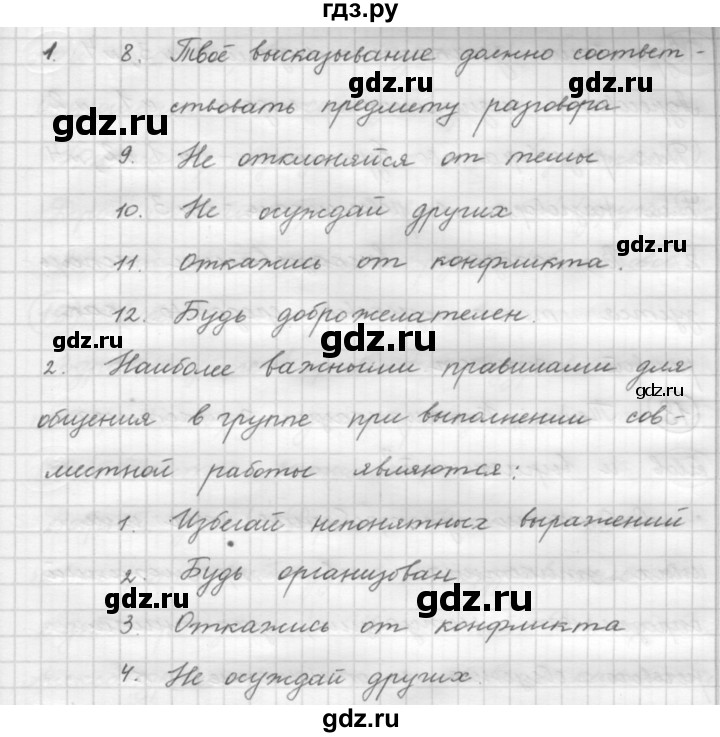 гдз.ру
1. 8. Твоё высказывание должно соответ-
gdz.ru gdz.ru
ствовать предмету разговора
gdz.ru
9. Не отклоняйся от темы
10. Не осуждай других
gdz.ru
11. Откажись от конфликта.
gdz.ru
12. Будь доброжелателен.
gdz.ru gdz.ru
2. Наиболее важными правилами для
gdz.ru
общения в группе при выполнении сов-
местной работы являются:
1. Избегай непонятных выражений
2. Будь организован
gdz.ru gdz.ru
3. Откажись от конфликта
4. Не осуждай других.
gdz.ru